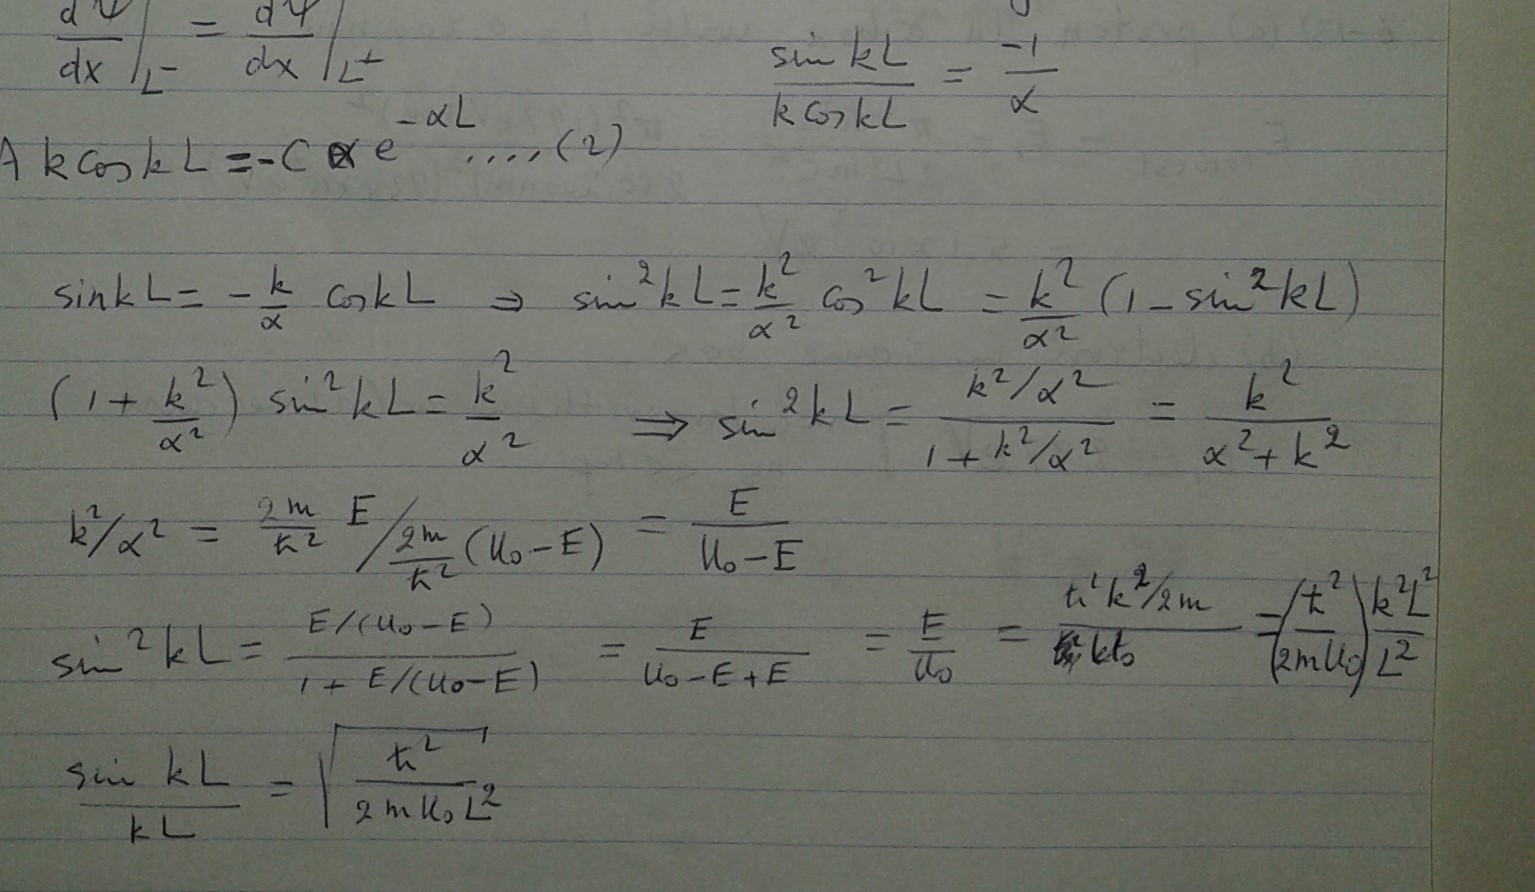 dΨ/dx |_L- = dΨ/dx |_L+
sin kL / k cos kL = -1/α
A k cos kL = -C α e^{-αL} ....(2)
sin kL = - k/α cos kL ⇒ sin²kL = k²/α² cos²kL = k²/α² (1 - sin²kL)
(1 + k²/α²) sin²kL = k²/α² ⇒ sin²kL = (k²/α²)/(1 + k²/α²) = k²/(α² + k²)
k²/α² = 2m/ħ² E / 2m/ħ² (U₀ - E) = E/(U₀ - E)
sin²kL = (E/(U₀-E))/(1 + E/(U₀-E)) = E/(U₀-E+E) = E/U₀ = (ħ²k²/2m)/U₀ = (ħ²/2mU₀) k²L²/L²
sin kL / kL = √(ħ²/2mU₀L²)